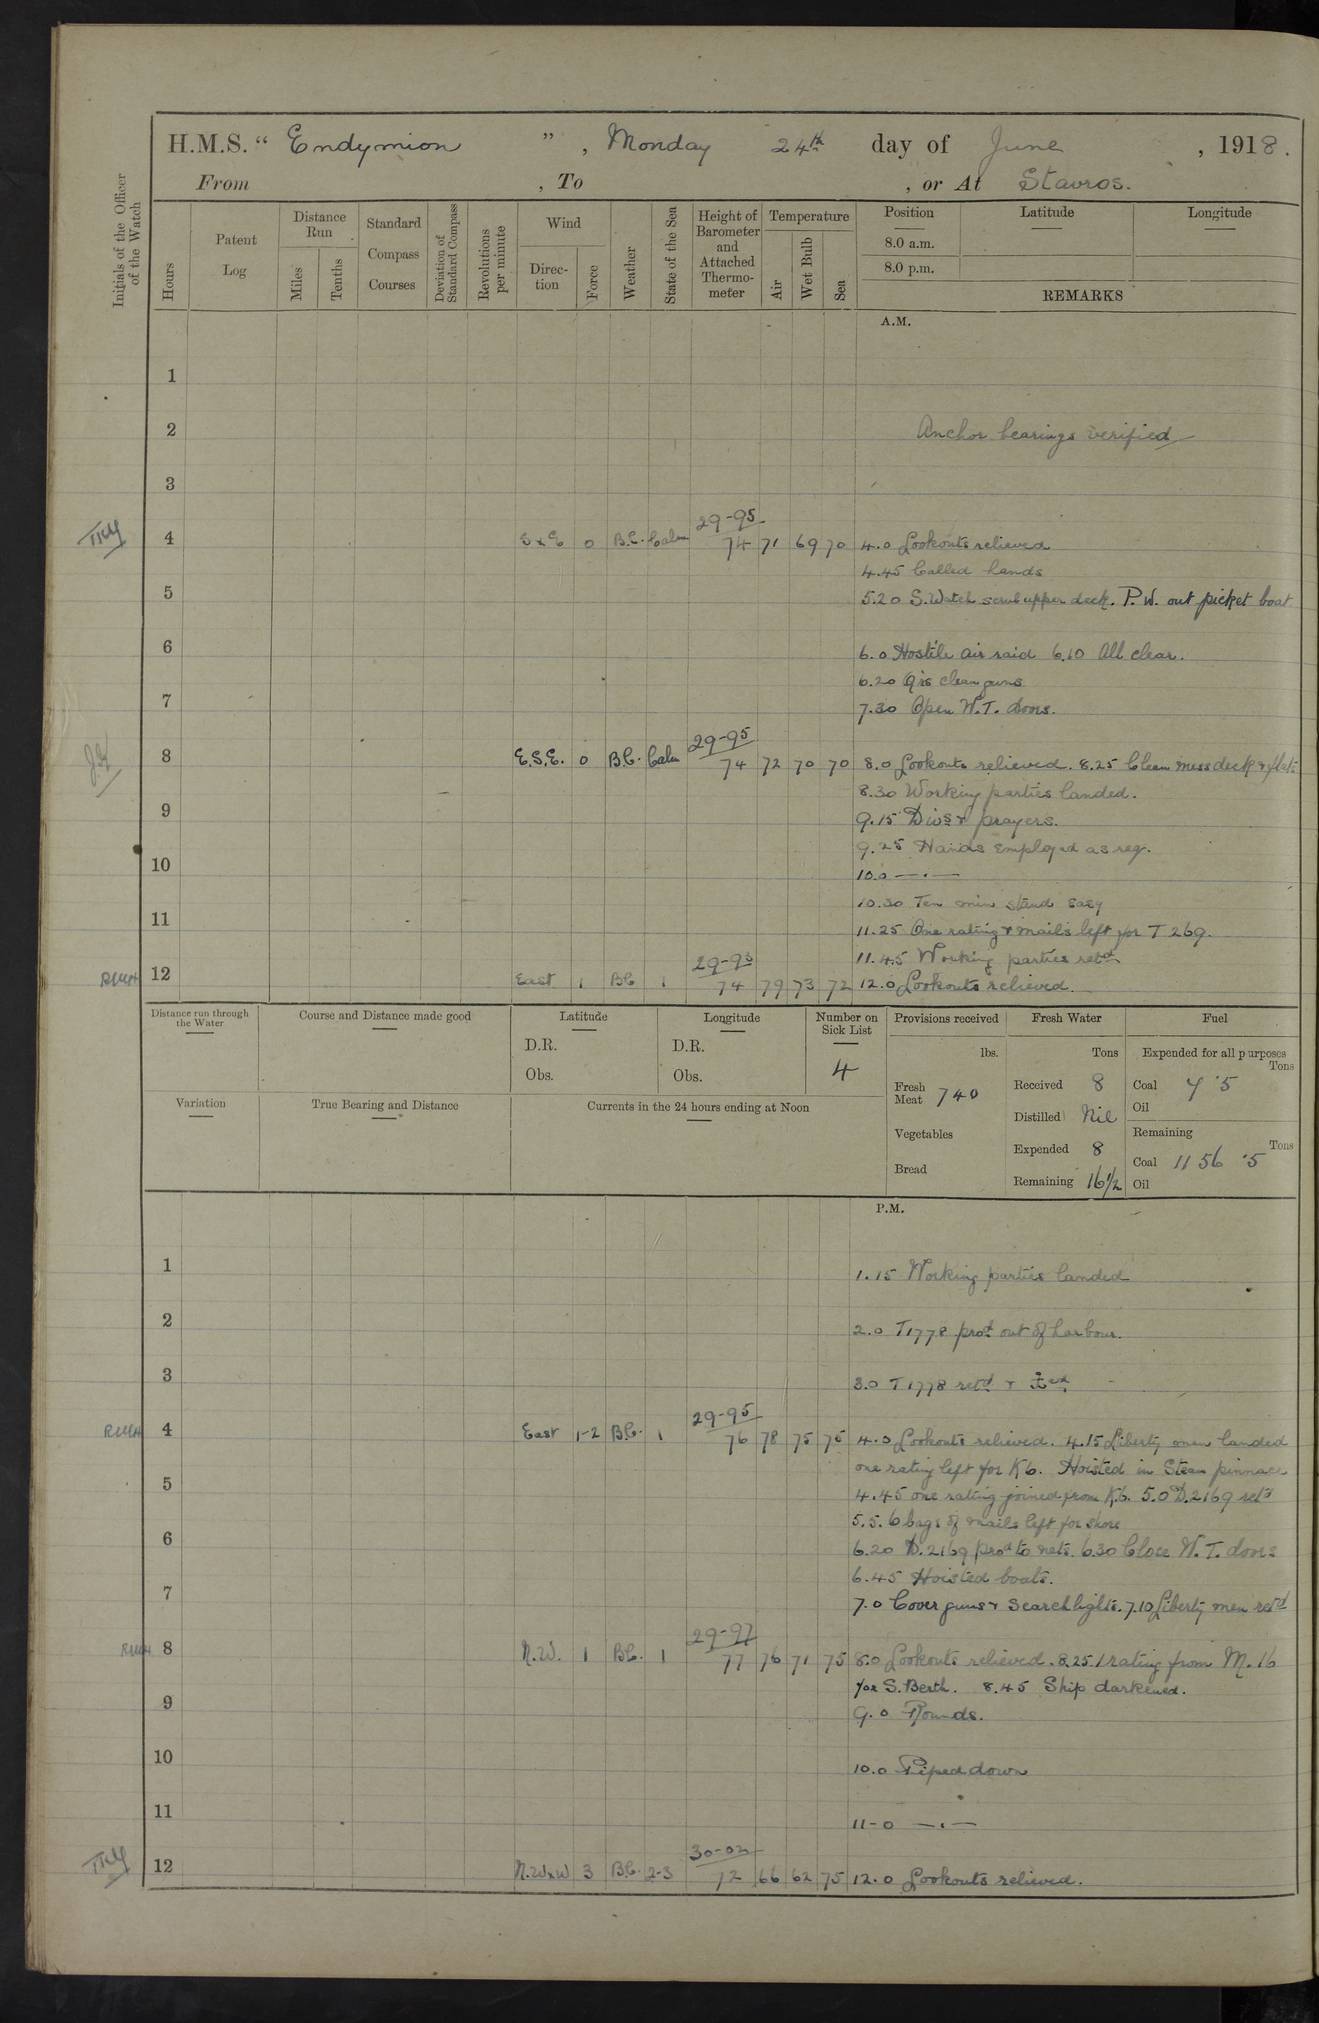 H.M.S. “ Endymion ” , Monday 24th day of June , 1918.
From , To , or At Stavros.
Initials of the Officer of the Watch
Hours
Patent Log
Distance Run
Miles
Tenths
Standard Compass Courses
Deviation of Standard Compass
Revolutions per minute
Wind
Direc-tion
Force
Weather
State of the Sea
Height of Barometer and Attached Thermo-meter
Temperature
Air
Wet Bulb
Sea
Position Latitude Longitude
8.0 a.m.
8.0 p.m.
REMARKS
A.M.
1
2 Anchor bearings verified
3
29-95
4 S x E 0 B.C. Calm 74 71 69 70 4.0 Lookouts relieved
4.45 Called hands
5 5.20 S. Watch scrub upper deck. P.W. out picket boat
6 6.0 Hostile air raid 6.10 All clear.
6.20 Qrs clean guns
7 7.30 Open W.T. doors.
29-95
8 E.S.E. 0 B.C. Calm 74 72 70 70 8.0 Lookouts relieved. 8.25 Clean mess deck & flats
8.30 Working parties landed.
9 9.15 Divs & prayers.
9.25 Hands employed as reqr.
10 10.0 — . —
10.30 Ten min stand easy
11 11.25 One rating & mails left for T 269.
11.45 Working parties retd
29-95
12 East 1 BC 1 74 79 73 72 12.0 Lookouts relieved.
Distance run through the Water
Course and Distance made good
Latitude
D.R.
Obs.
Longitude
D.R.
Obs.
Number on Sick List
4
Provisions received
lbs.
Fresh Meat 740
Vegetables
Bread
Fresh Water
Tons
Received 8
Distilled Nil
Expended 8
Remaining 16½
Fuel
Expended for all purposes
Tons
Coal 7.5
Oil
Remaining
Tons
Coal 1156.5
Oil
Variation
True Bearing and Distance
Currents in the 24 hours ending at Noon
P.M.
1 1.15 Working parties landed
2 2.0 T1778 prod out of harbour.
3 3.0 T1778 retd &
29-95
4 East 1-2 B.C. 1 76 78 75 75 4.0 Lookouts relieved. 4.15 Liberty men landed
one rating left for K6. Hoisted in Steam pinnace
5 4.45 one rating joined from K6. 5.0 D.2169 retd
5.5. 6 bags of mails left for shore
6 6.20 D.2169 procd to nets. 6.30 Close W.T. doors
6.45 Hoisted boats.
7 7.0 Cover guns & Searchlights. 7.10 Liberty men retd
29-97
8 N.W. 1 B.C. 1 77 76 71 75 8.0 Lookouts relieved. 8.25. 1 rating from M.16
for S. Berth. 8.45 Ship darkened.
9 9.0 Rounds.
10 10.0 Piped down
11 11-0 — . —
30-02
12 N.W x W 3 B.C. 2-3 72 66 62 75 12.0 Lookouts relieved.